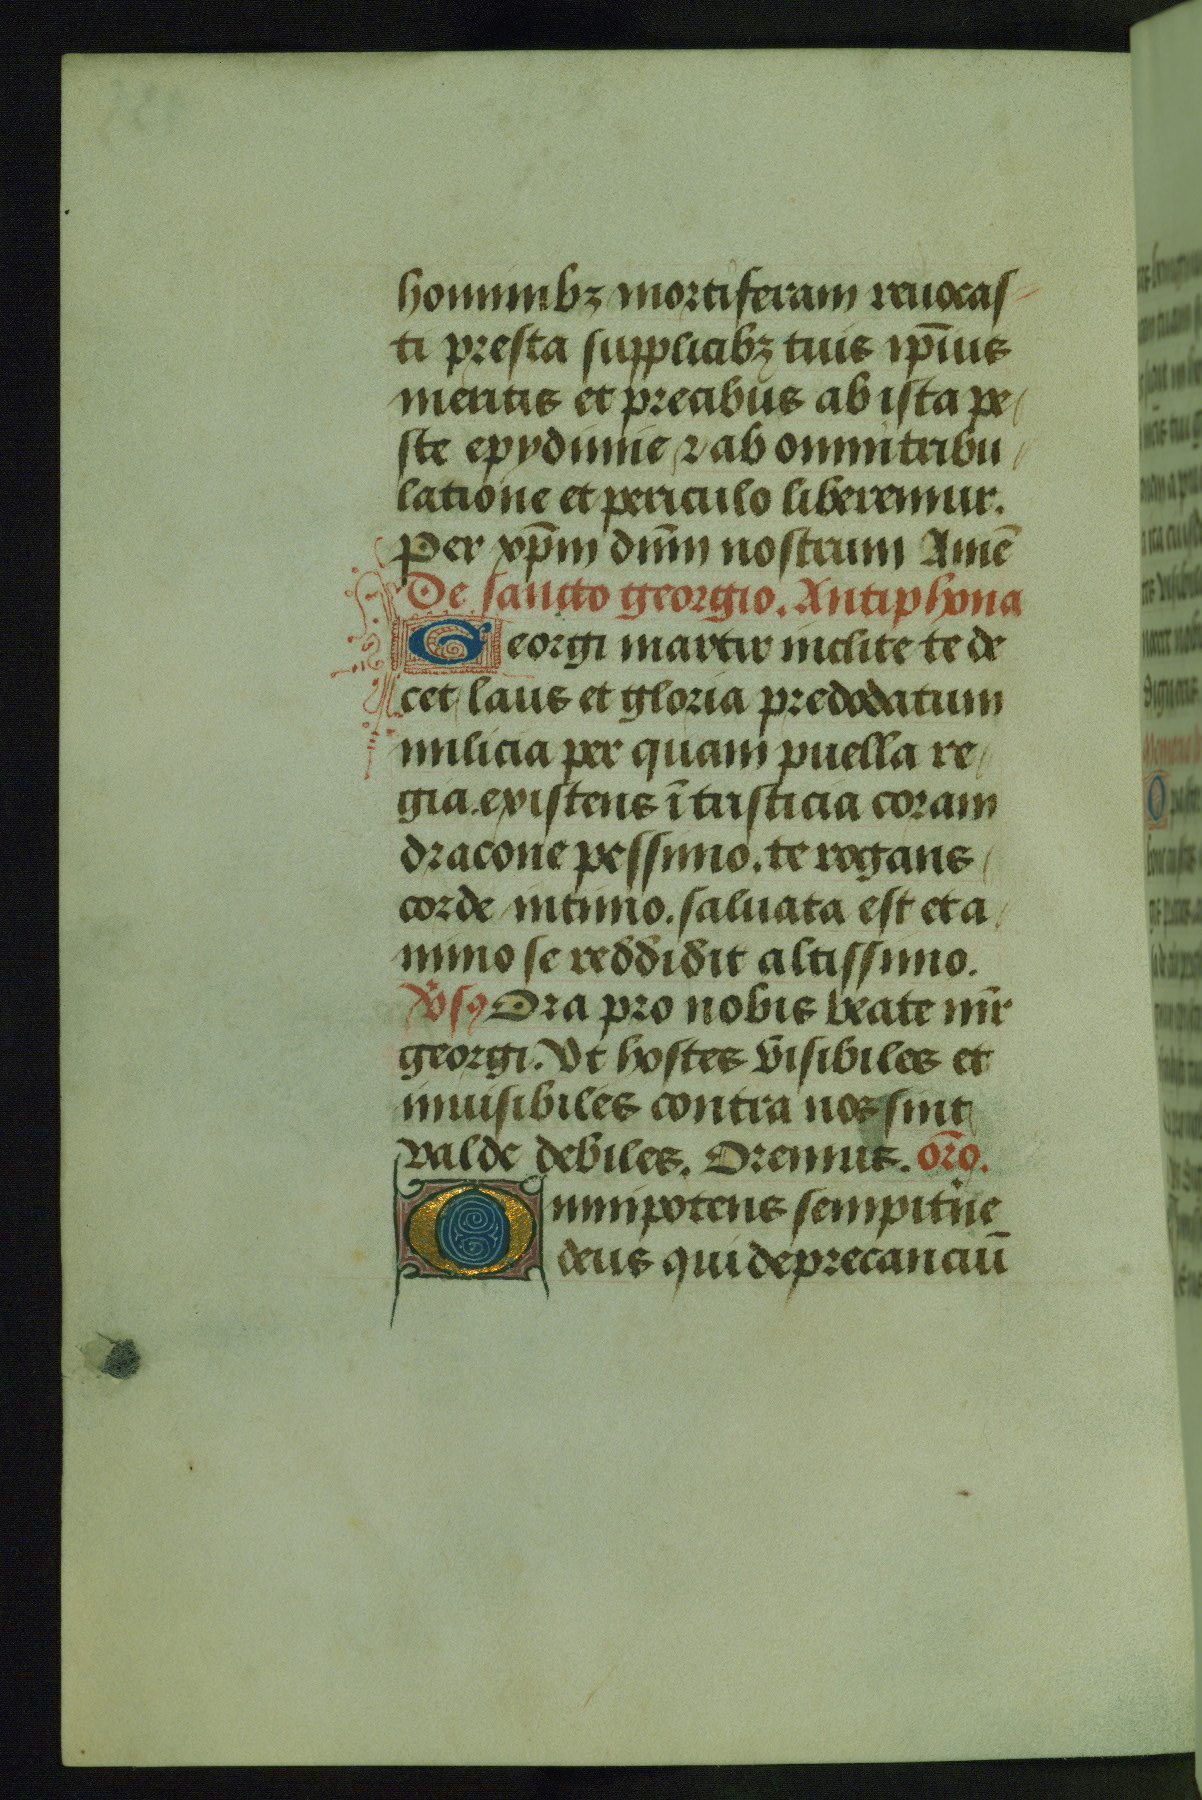 hominibꝫ mortiferam reuocas
ti presta supplicibꝫ tuis ip̄ius
meritis et precibus ab ista pe
ste epydimie ⁊ ab omni tribu
latione et periculo liberemur.
Per xp̄m dn̄m nostrum Amē
De sancto georgio. Antiphona
Georgi martir inclite te de
cet laus et gloria predodatum
milicia per quam puella re
gia. existens ī tristicia coram
dracone pessimo. te rogans
corde intimo. saluata est et a
nimo se reddidit altissimo.
Vsꝯ Ora pro nobis beate mr̄
georgi. Vt hostes visibiles et
inuisibiles contra nos sint
valde debiles. Oremus. or̄o.
Omnipotens sempitn̄e
deus qui deprecanciū